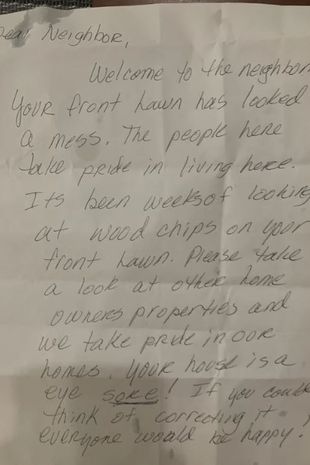 Dear Neighbor,
Welcome to the neighbor
Your front Lawn has looked
a mess. The people here
take pride in living here.
Its been weeks of looking
at wood chips on your
front Lawn. Please take
a look at other home
owners properties and
we take pride in our
homes. Your house is a
eye sore! If you could
think of correcting it
everyone would be happy!